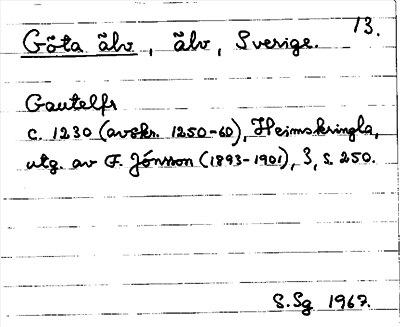 13.
Göta älv, älv, Sverige.
Gautelfr
c. 1230 (avskr. 1250-60), Heimskringla,
utg. av F. Jónsson (1893-1901), 3, s. 250.
S.Sg 1967.